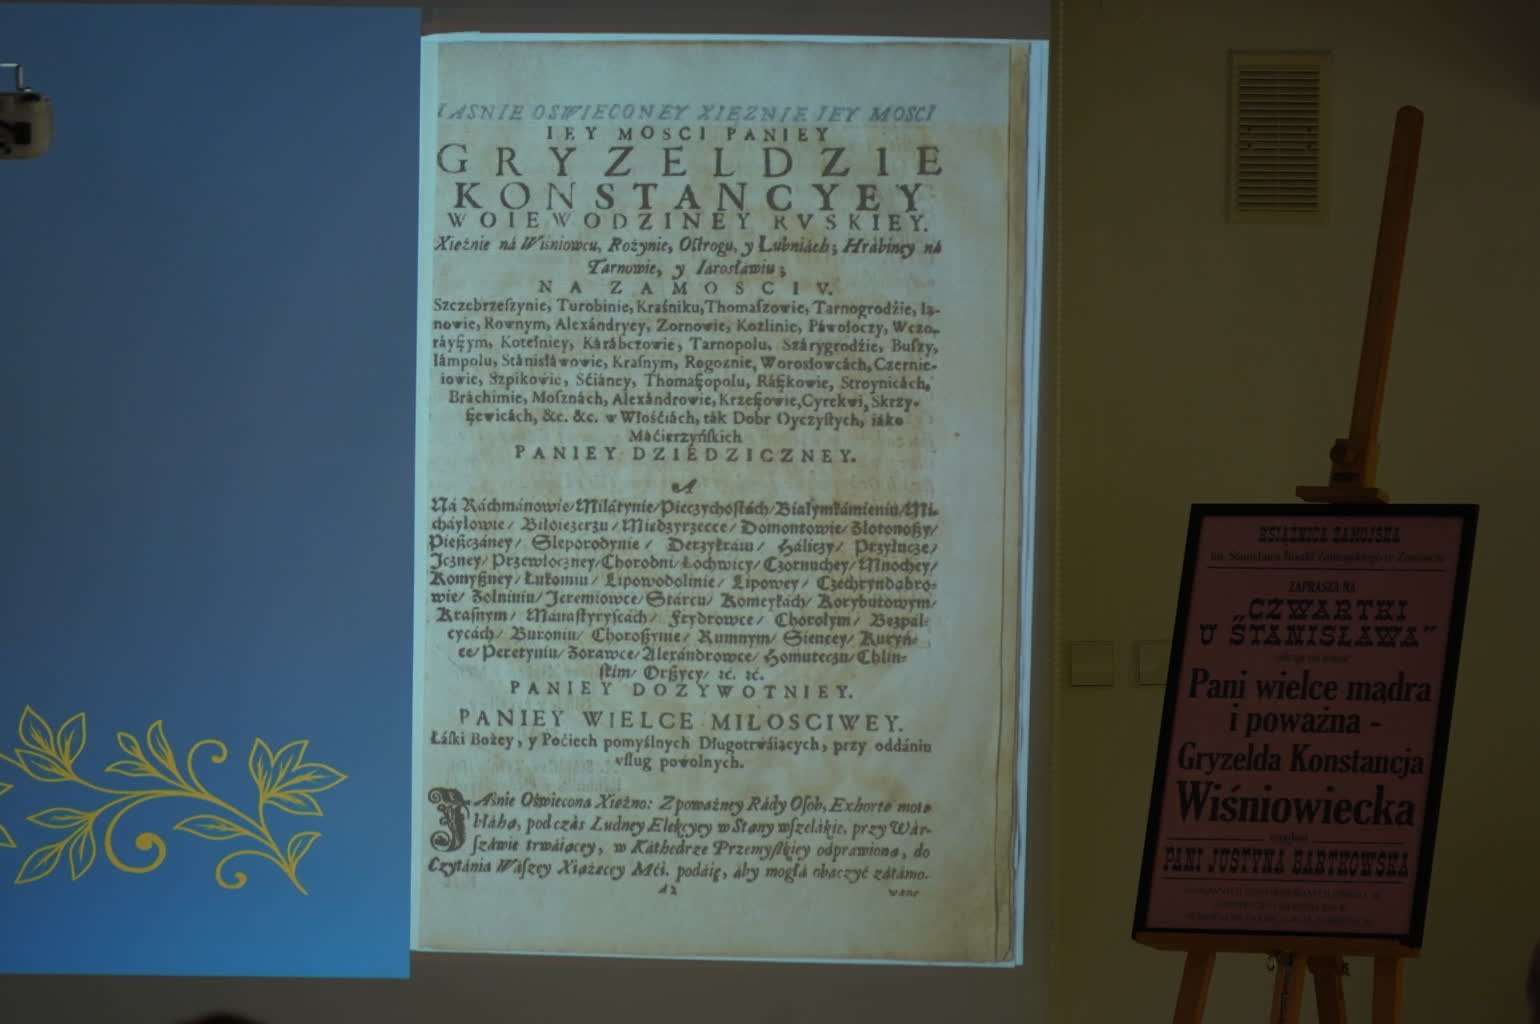 IASNIE OSWIECONEY XIEZNIE IEY MOSCI
IEY MOSCI PANIEY
GRYZELDZIE
KONSTANCYEY
WOIEWODZINEY RVSKIEY.
Xieżnie ná Wiśniowcu, Rożynie, Oſtrogu, y Lubniách; Hrábiney ná
Tarnowie, y Iarosławiu;
NA ZAMOSCIV.
Szczebrzeſzynie, Turobinie, Kraśniku, Thomaſzowie, Tarnogrodźie, Ia-
nowie, Rownym, Alexándryey, Zornowie, Kozlinie, Páwołoczy, Wczo-
ráyſzym, Kotelniey, Kárábczowie, Tarnopolu, Szárygrodźie, Buſzy,
Iámpolu, Stánisławowie, Kraſnym, Rogoznie, Worosłowcách, Czernie-
iowie, Szpikowie, Sćiáncy, Thomaſzopolu, Ráſzkowie, Stroynicách,
Bráchimie, Moſznách, Alexándrowie, Krzeſzowie, Cyrekwi, Skrzy-
ſzewicách, &c. &c. w Włośćiách, ták Dobr Oyczyſtych, iáko
Máćierzyńſkich
PANIEY DZIEDZICZNEY.
A
Ná Ráchmánowie/ Milátynie/ Pieczychoſtách/ Białymkámieniu/ Mi-
cháyłowie/ Biłoiezerzu/ Miedzyrzecce/ Domontowie/ Złotonoſzy/
Pieſzczáney/ Sleporodynie/ Derzykráiu/ Háliczy/ Przyłucze/
Iczney/ Przewłoczney/ Chorobni/ Łochwicy/ Czornuchey/ Mnochey/
Komyſzney/ Łukomiu/ Lipowodolinie/ Lipowey/ Czechryndąbro-
wie/ Zołniniu/ Jeremiowce/ Stárcu/ Komeykách/ Korybutowym/
Kraſnym/ Mánáſtyryſcách/ Frydrowce/ Chorołym/ Bezpál-
cycách/ Buroniu/ Choroſzynie/ Rumnym/ Siencey/ Kuryń-
ce/ Peretyniu/ Zorawce/ Alexándrowce/ Homuteczu/ Chlin-
ſkim/ Orſzycy/ ꝛc. ꝛc.
PANIEY DOZYWOTNIEY.
PANIEY WIELCE MIŁOSCIWEY.
Łáſki Bożey, y Poćiech pomyślnych Długotrwáiących, przy oddániu
vſlug powolnych.
JAśnie Oświecona Xieżno: Z poważney Rády Oſob, Exhortę moię
błáhą, podczás Ludney Elekcyey w Stany wſzelákie, przy Wár-
ſzáwie trwáiącey, w Káthedrze Przemyſkiey odpráwioną, do
Czytánia Wáſzey Xiążęcey Mći. podáię, áby mogłá obaczyć zátámo-
A2
wáne
KSIĄŻNICA ZAMOJSKA
im. Stanisława Kostki Zamoyskiego w Zamościu
ZAPRASZA NA
„CZWARTKI
U STANISŁAWA”
Pani wielce mądra
i poważna -
Gryzelda Konstancja
Wiśniowiecka
PANI JUSTYNA BARTKOWSKA